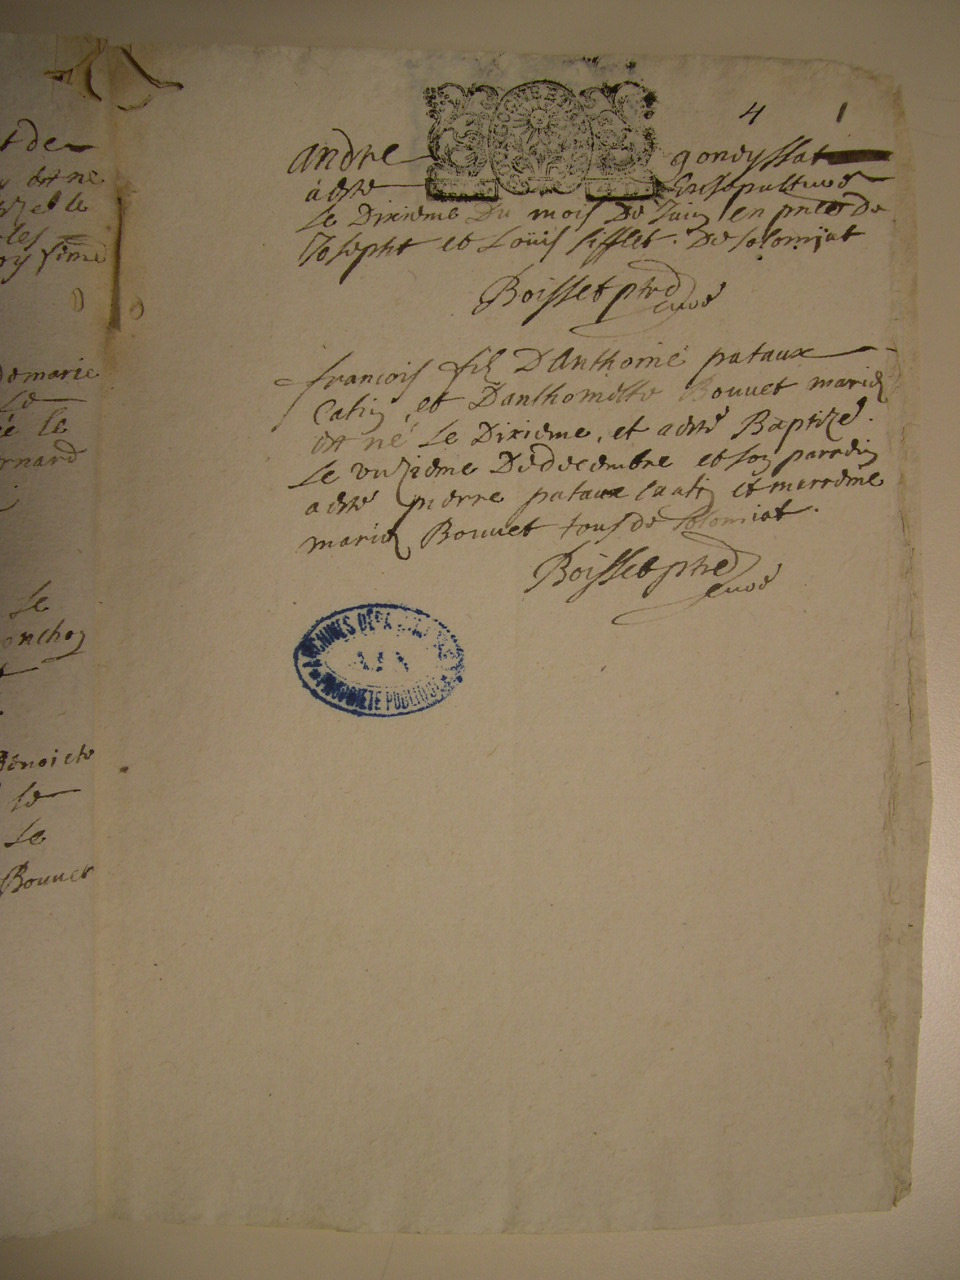 4
andre gonoyssat
a esté Ensepulturé
Le Dixieme Du mois De Juin en pnce de
Josepht et Loüis sifflet. De solomiat
Boisset ptre
curé
francois fils D'Anthoine pataux
Catin, et D'anthoinette Bouvet mariez
est né Le Dixieme, et a esté Baptizé.
Le unzieme De decembre et son parrein
a esté pierre pataux Catin et marreine
marie Bouvet tous de solomiat.
Boisset ptre
curé
ARCHIVES DÉPARTEMENTALES
AIN
PROPRIÉTÉ PUBLIQUE
t de
est né
le
les
demarie
Le
é le
ernard
Le
onchoz
Benoicte
Le
Le
Bouvet